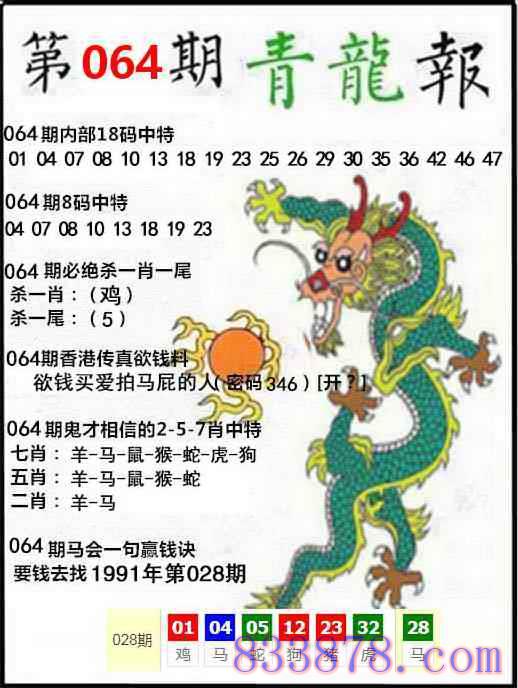 第064期青龍報
064期内部18码中特
01 04 07 08 10 13 18 19 23 25 26 29 30 35 36 42 46 47
064期8码中特
04 07 08 10 13 18 19 23
064期必绝杀一肖一尾
杀一肖：（鸡）
杀一尾：（5）
064期香港传真欲钱料
欲钱买爱拍马屁的人（密码346）[开？]
064期鬼才相信的2-5-7肖中特
七肖：羊-马-鼠-猴-蛇-虎-狗
五肖：羊-马-鼠-猴-蛇
二肖：羊-马
064期马会一句赢钱诀
要钱去找1991年第028期
028期 01 04 05 12 23 32 28
鸡 马 蛇 狗 猪 虎 马
833878.com